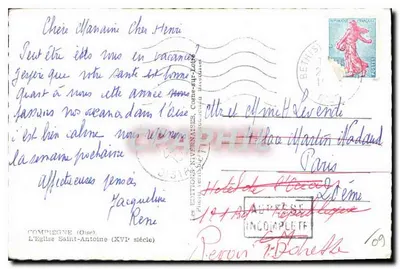 Chère Marraine Cher Henri
Peut être êtes vous en vacances
j'espère que votre santé est bonne
quant à nous cette année nous
passons nos vacances dans l'Oise
c'est bien calme nous rentrons
la semaine prochaine
Affectueuses pensées
Jacqueline
René
COMPIEGNE (Oise)
L'Eglise Saint-Antoine (XVIe siècle)
LES EDITIONS NIVERNAISES, Cosne-sur-Loire
Mr et Mme H
1 Rue Martin Nadaud
Paris
20ème
Hotel de
République
ADRESSE
INCOMPLETE
/09